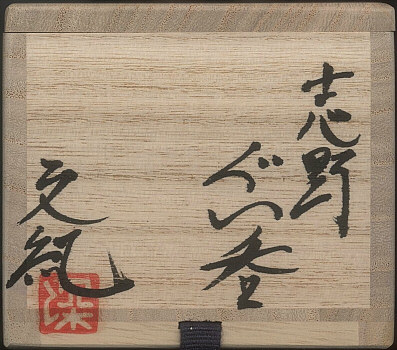 志野
ぐい呑
文紀